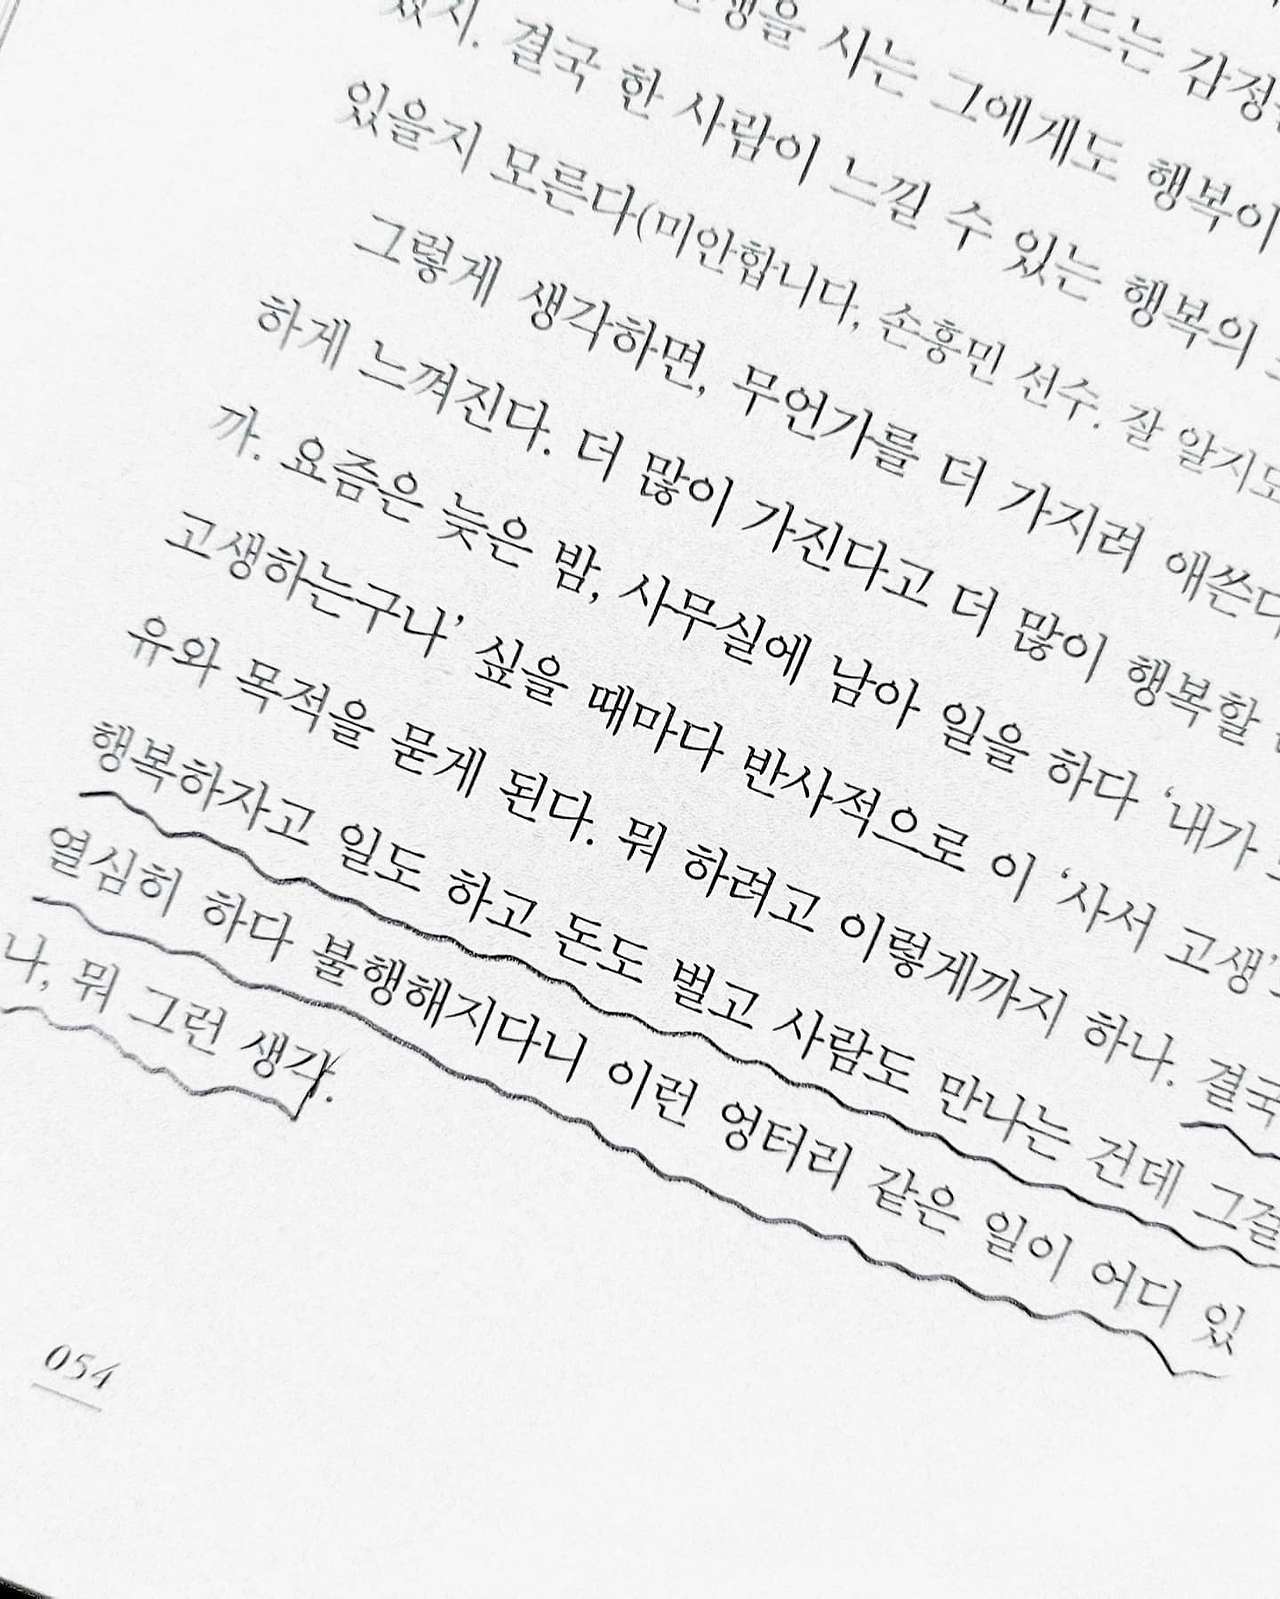 감정
생을 사는 그에게도 행복이
있지. 결국 한 사람이 느낄 수 있는 행복의
있을지 모른다(미안합니다, 손흥민 선수. 잘 알지도
그렇게 생각하면, 무언가를 더 가지려 애쓴다
하게 느껴진다. 더 많이 가진다고 더 많이 행복할
까. 요즘은 늦은 밤, 사무실에 남아 일을 하다 ‘내가
고생하는구나’ 싶을 때마다 반사적으로 이 ‘사서 고생’
유와 목적을 묻게 된다. 뭐 하려고 이렇게까지 하나. 결국
행복하자고 일도 하고 돈도 벌고 사람도 만나는 건데 그걸
열심히 하다 불행해지다니 이런 엉터리 같은 일이 어디 있
나, 뭐 그런 생각.
054